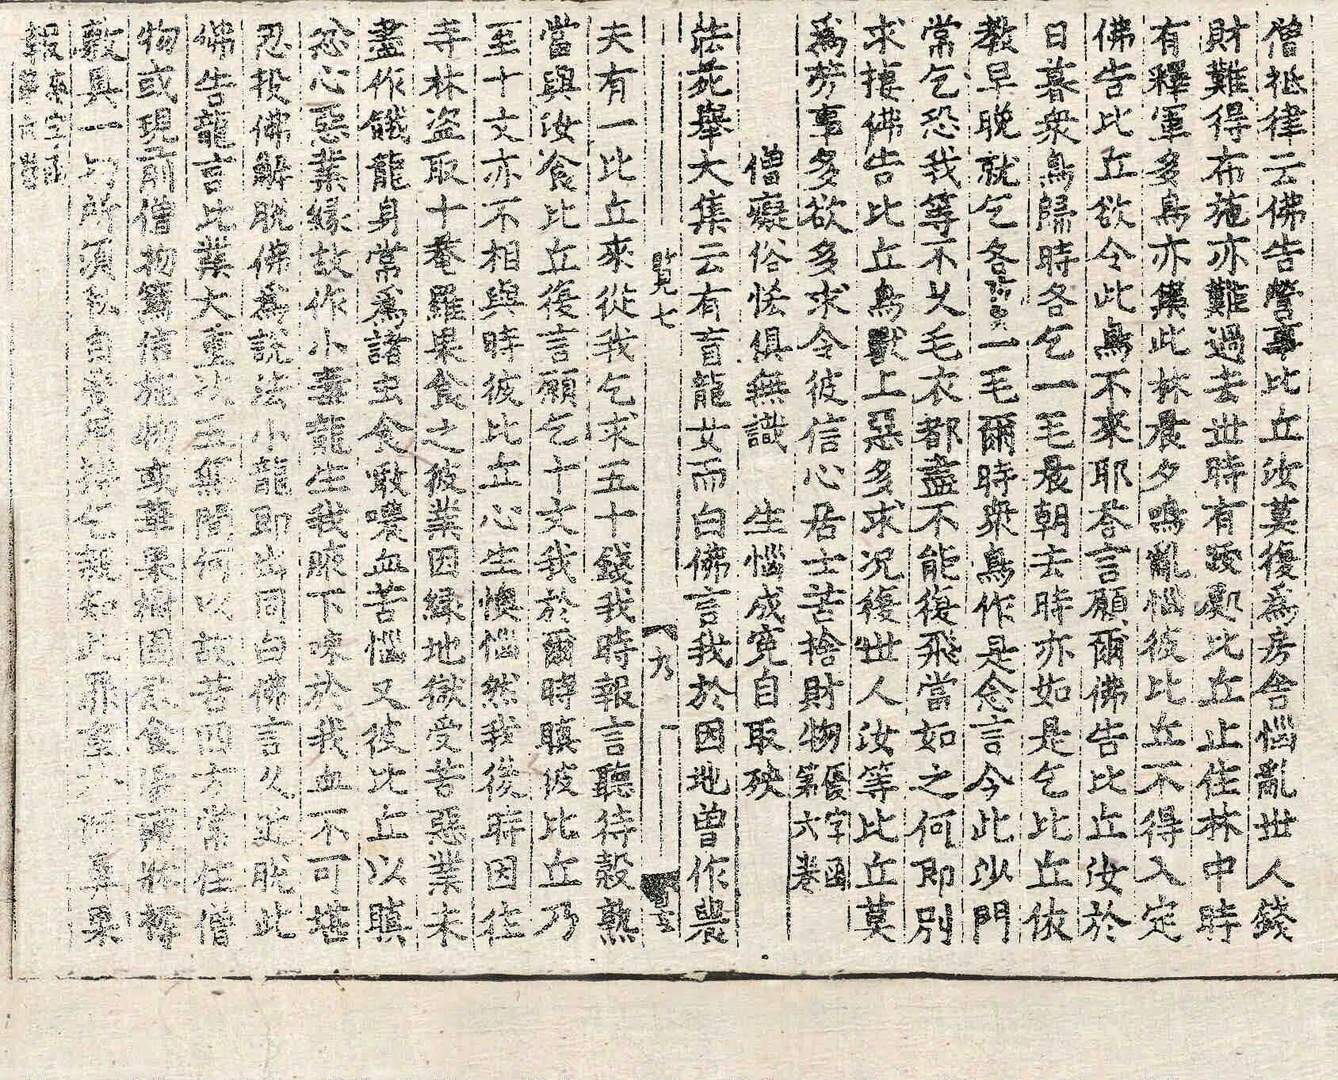 僧祇律云佛告營事比丘汝莫復爲房舍惱亂世人錢
財難得布施亦難過去世時有跋懅比丘止住林中時
有釋軍多鳥亦集此林晨夕鳴亂惱彼比丘不得入定
佛告比丘欲令此鳥不來耶荅言願爾佛告比丘汝於
日暮衆鳥歸時各乞一毛晨朝去時亦如是乞比丘依
教早晚就乞各與一毛爾時衆鳥作是念言今此沙門
常乞恐我等不久毛衣都盡不能復飛當如之何即別
求捿佛告比丘鳥獸上惡多求况復世人汝等比丘莫
爲芳事多欲多求令彼信心居士苦捨財物第六卷 長字函
僧癡俗恡俱無識 生惱成寃自取殃
莊茺舉大集云有盲龍女而白佛言我於因地曾作裠
覽七
九
夫有一比丘來從我乞求五十錢我時報言聽待穀熟
當與汝食比丘復言願乞十文我於爾時瞋彼比丘乃
至十文亦不相與時彼比丘心生懊惱然我後時因往
寺林盗取十菴羅果食之彼業因緣地獄受苦惡業未
盡作餓龍身常爲諸虫食噉膿血苦惱又彼比丘以瞋
忿心惡業緣故作小毒龍生我腋下嗽於我血不可堪
忍投佛解脫佛爲說法小龍即出同白佛言久近脫此
佛告龍言此業大重次五無間何以故若四方常住僧
物或現前僧物篤信施物或華果樹園飲食
敷具一切所須私自 與 親知此罪重於 果
報